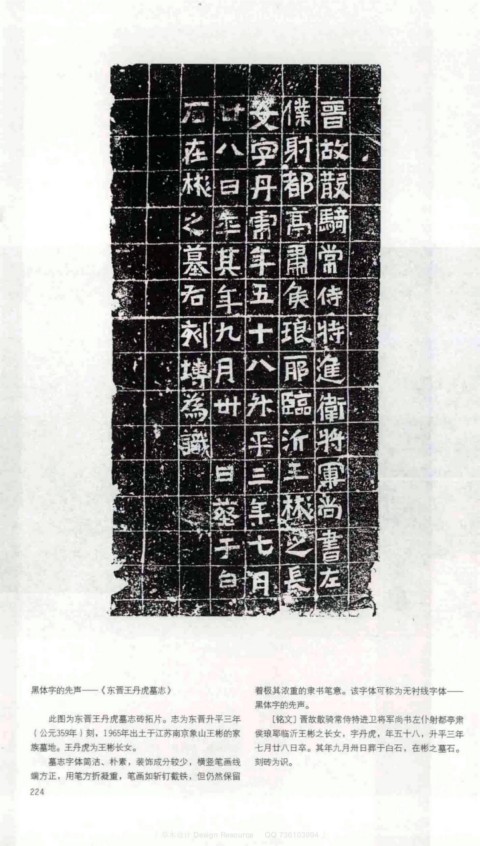 晉故散騎常侍特進衛將軍尚書左
僕射都亭肅侯琅耶臨沂王彬之長
女字丹虎年五十八升平三年七月
廿八日卒其年九月卅日葬于白
石在彬之墓右刻塼為識
黑体字的先声——《东晋王丹虎墓志》
此图为东晋王丹虎墓志砖拓片。志为东晋升平三年
（公元359年）刻，1965年出土于江苏南京象山王彬的家
族墓地。王丹虎为王彬长女。
墓志字体简洁、朴素，装饰成分较少，横竖笔画线
端方正，用笔方折凝重，笔画如斩钉截铁，但仍然保留
着极其浓重的隶书笔意。该字体可称为无衬线字体——
黑体字的先声。
［铭文］晋故散骑常侍特进卫将军尚书左仆射都亭肃
侯琅耶临沂王彬之长女，字丹虎，年五十八，升平三年
七月廿八日卒。其年九月卅日葬于白石，在彬之墓右。
刻砖为识。
224